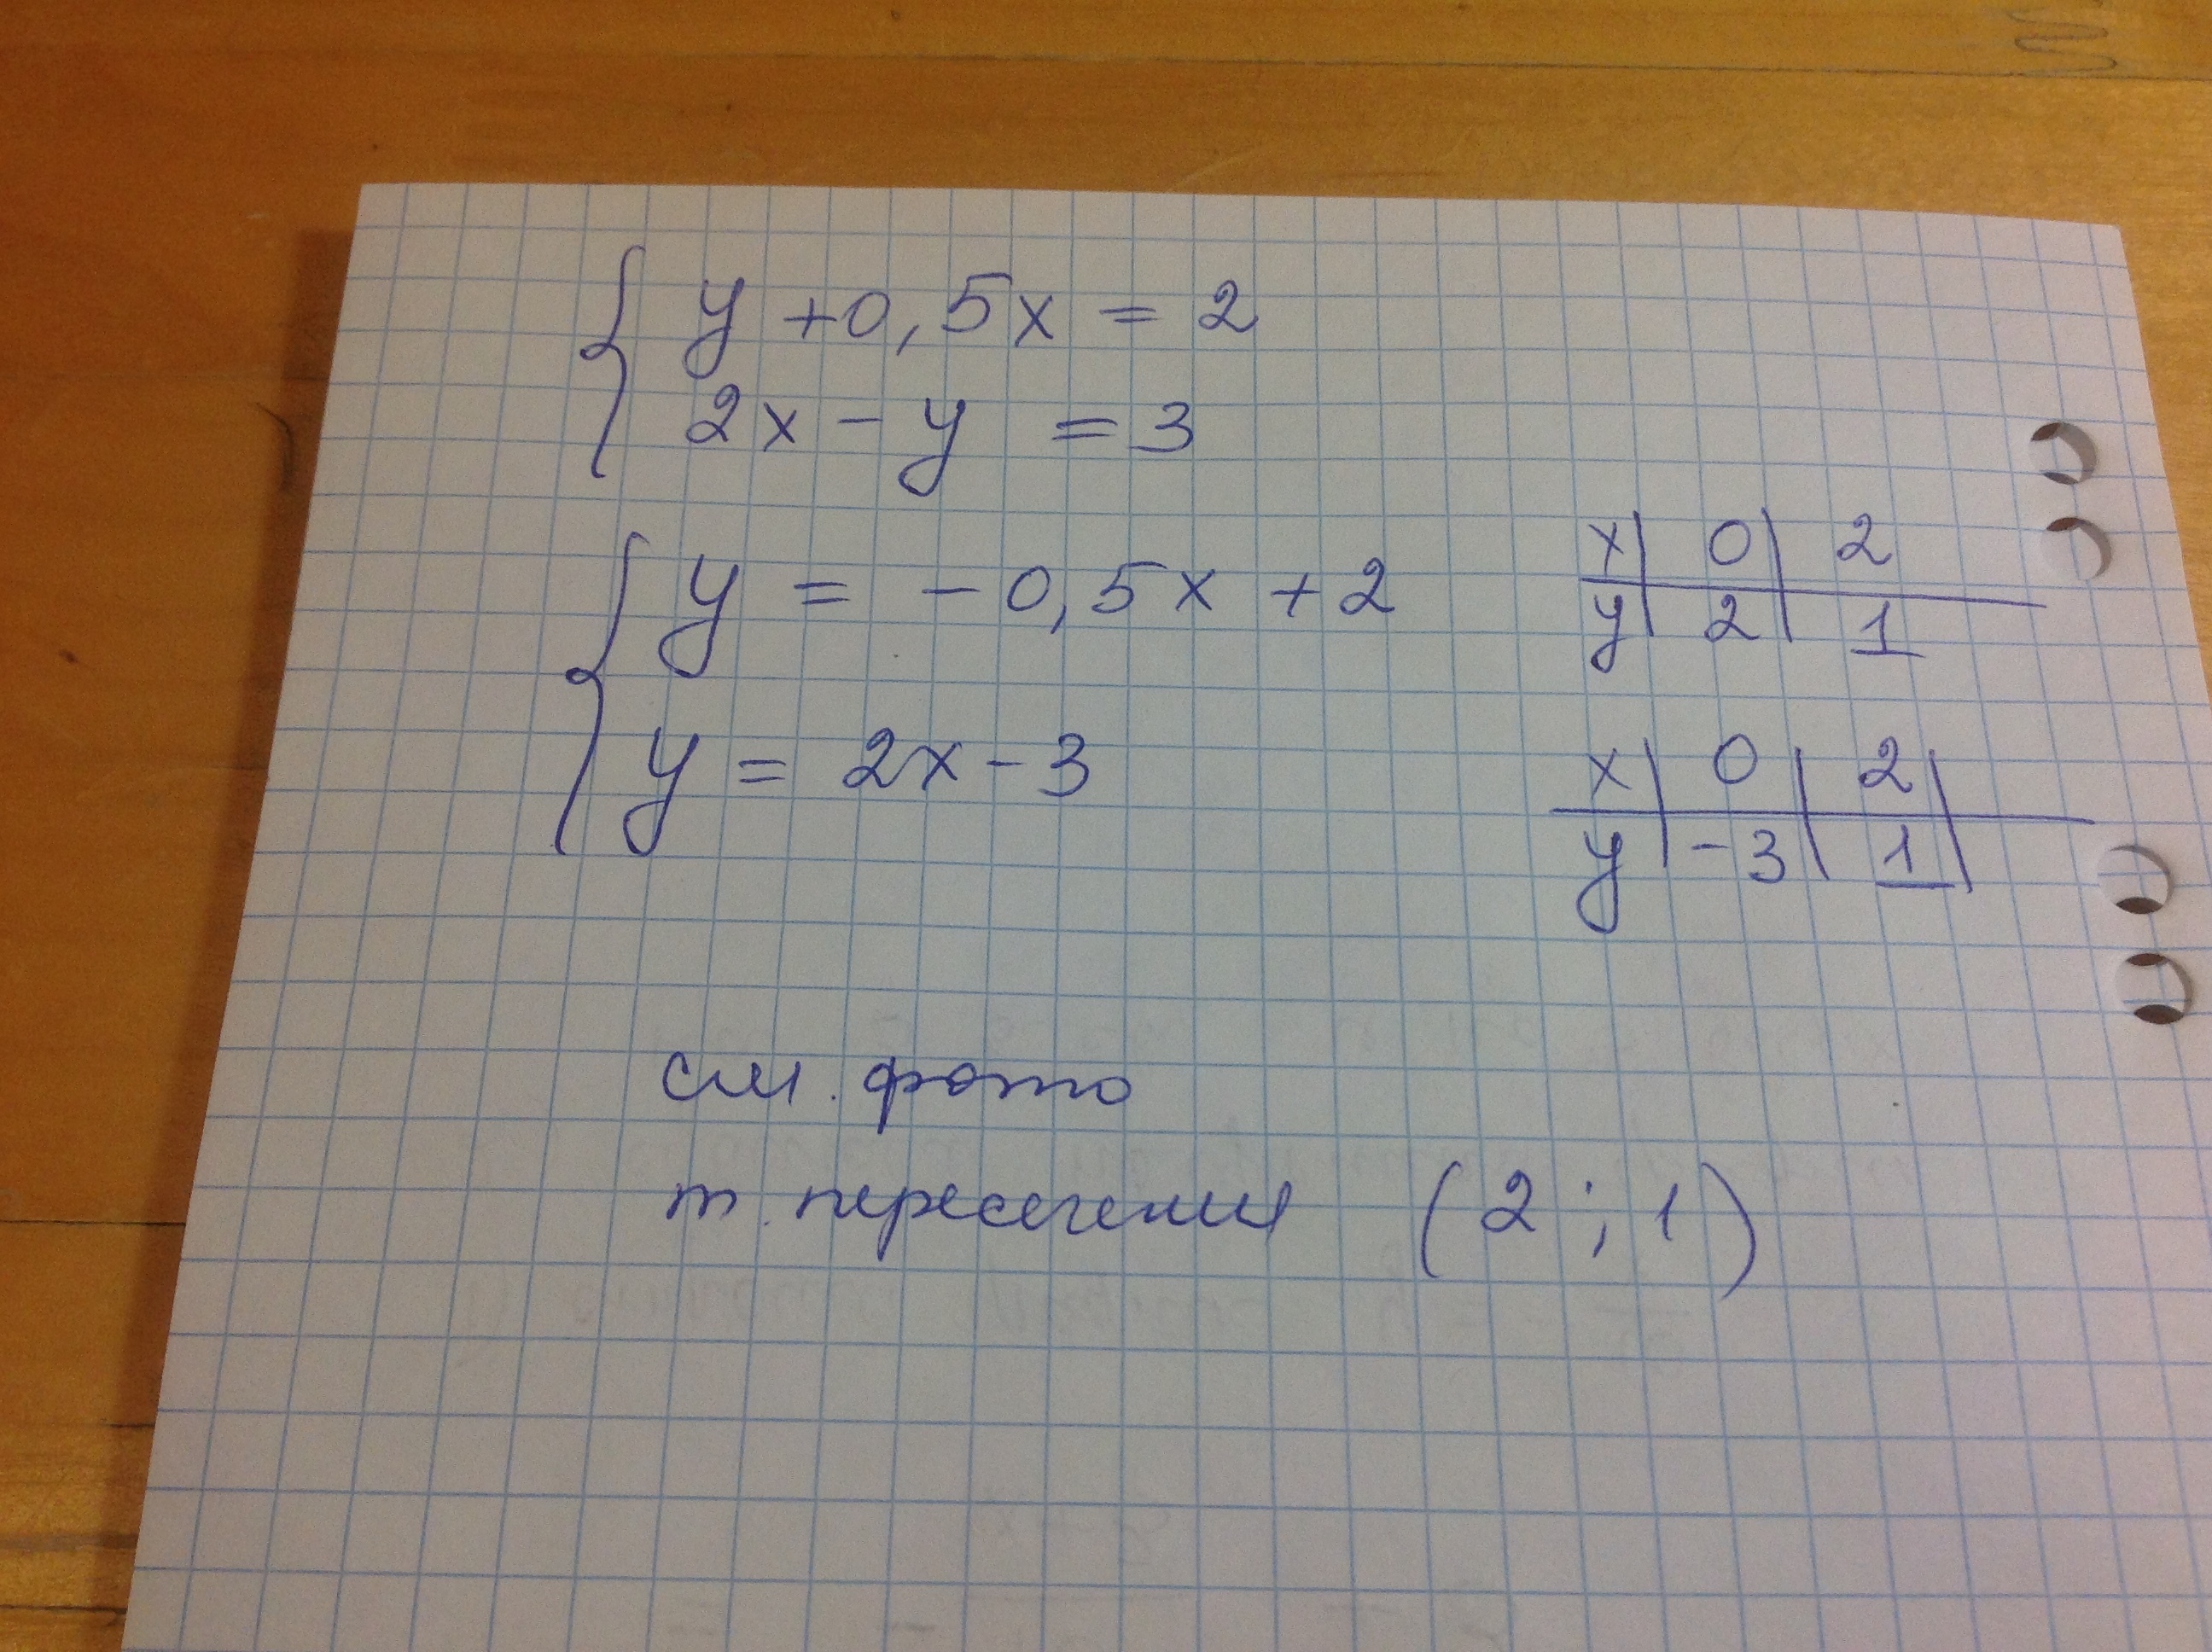 y + 0,5x = 2
2x - y = 3
y = -0,5x + 2
x | 0 | 2
y | 2 | 1
y = 2x - 3
x | 0 | 2 |
y | -3 | 1 |
см. фото
т. пересечения (2 ; 1)